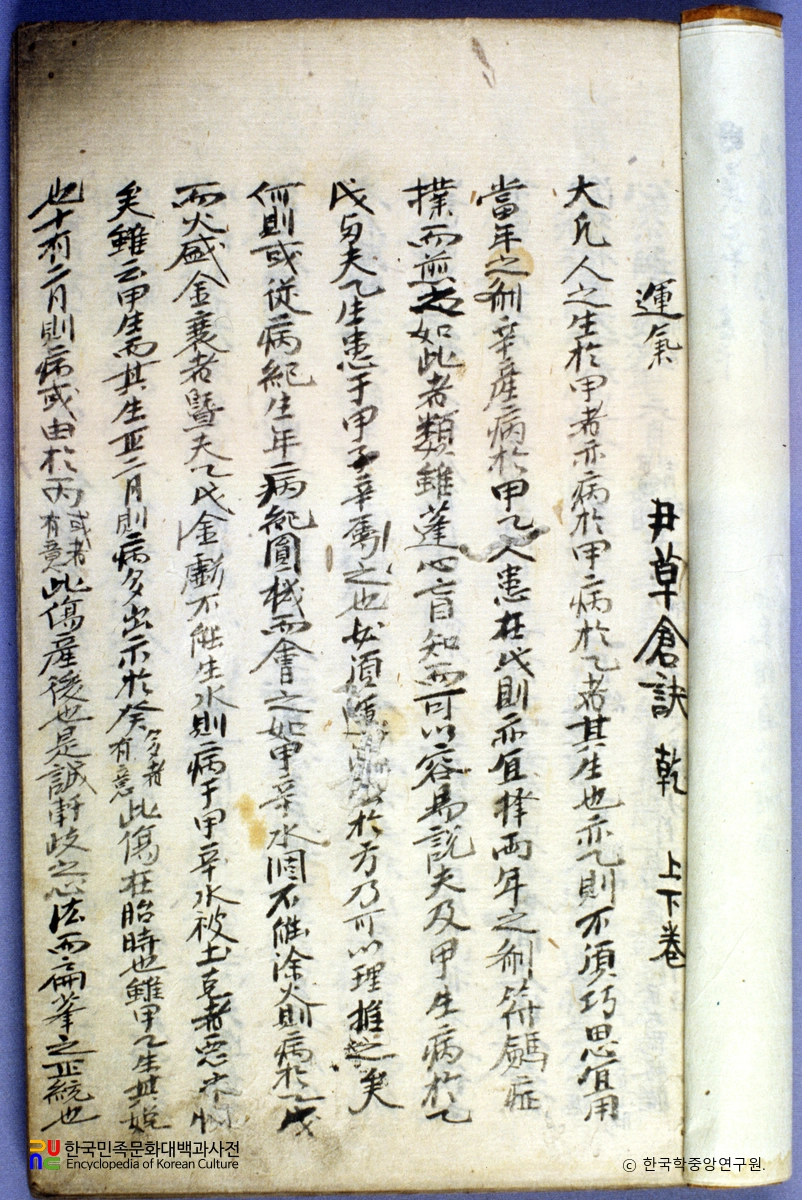 運氣 尹草倉訣 乾 上下卷
大凡人之生於甲者亦病於甲病於乙者其生也亦乙則不須巧思宜用
當年之劑辛産病於甲乙人患在戊則亦宜擇兩年之劑符 症
擈而並之如此者類雖蓬心盲知而可以容易說夫及甲生病於乙
戊与夫乙生患于甲子辛 之也必須 於方乃可以理推之矣
何則或從病紀生年病紀圓機而會之如甲辛水涸不能涂火則病於乙戊
而火盛金衰者曁夫乙戊金虧不能生水則病于甲辛水被土克者悉
矣雖云甲生而其生正二月則病多出示於癸 多者有意 此傷在胎時也雖甲乙生其娩
也十有二月則病或由於丙 或者有意 此傷産後也是誠軒岐之心法而扁華之正統也
한국민족문화대백과사전
Encyclopedia of Korean Culture
© 한국학중앙연구원.